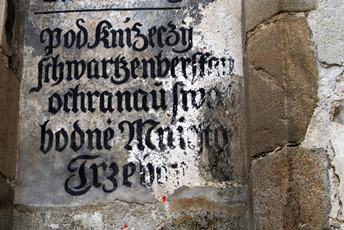 pod Knižeczy
schwartzenberſkau
ochranaú ſwo
bodné Mnieſto
Trzebon